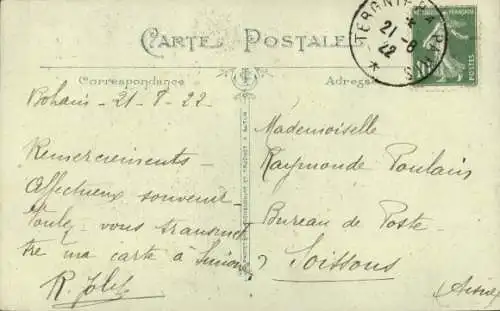 CARTE POSTALE
Correspondance
Adresse
TERGNIER A PARIS
21-8
22
POSTES
Bohain - 21-8-22
Remerciements -
Affectueux souvenir -
Voulez-vous transmet
tre ma carte à Simone
R. Joly
Mademoiselle
Raymonde Poulain
Bureau de Poste
Soissons
(Aisne)